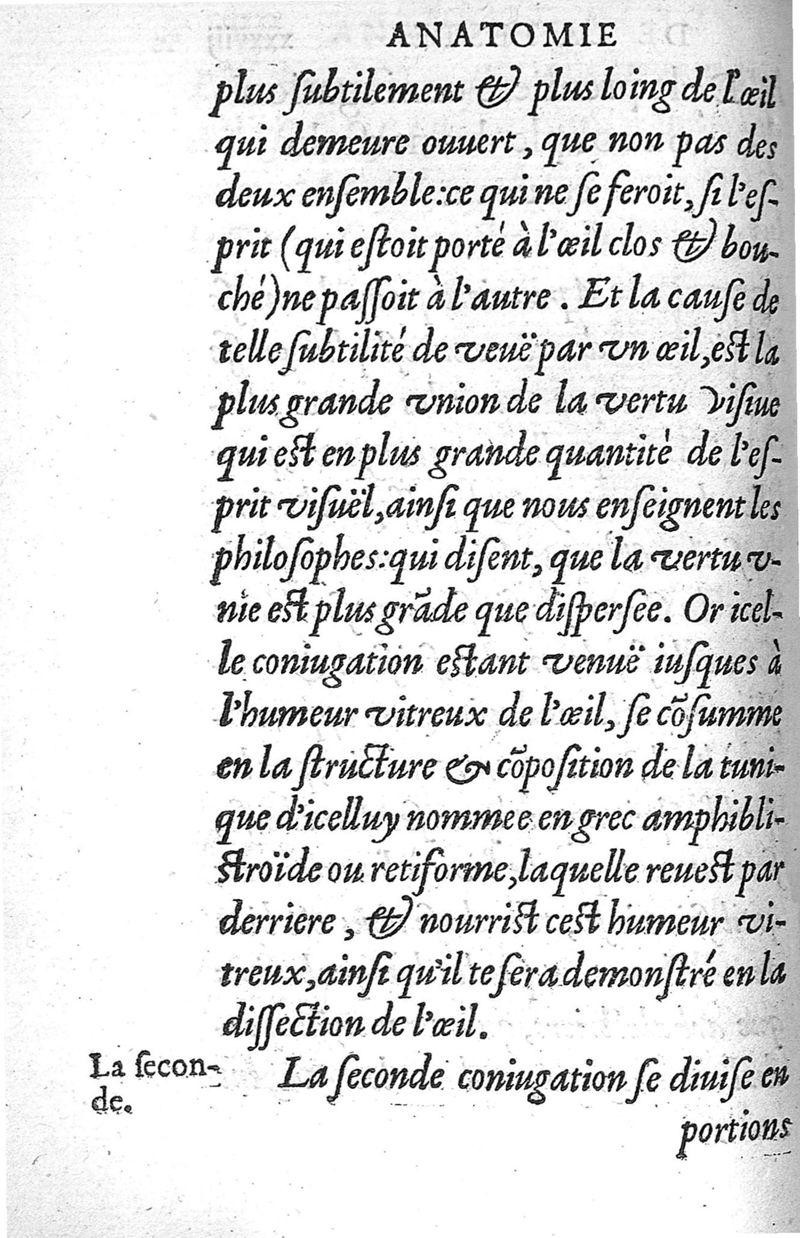 ANATOMIE
plus ſubtilement & plus loing de l'œil
qui demeure ouuert, que non pas des
deux enſemble:ce qui ne ſe feroit, ſi l'eſ-
prit (qui eſtoit porté à l'œil clos & bou-
ché) ne paſſoit à l'autre. Et la cauſe de
telle ſubtilité de veuë par vn œil, eſt la
plus grande vnion de la vertu viſiue
qui eſt en plus grande quantité de l'eſ-
prit viſuël, ainſi que nous enſeignent les
philoſophes: qui diſent, que la vertu v-
nie eſt plus grãde que diſperſee. Or icel-
le coniugation eſtant venuë iuſques à
l'humeur vitreux de l'œil, ſe cõſumme
en la ſtructure & cõpoſition de la tuni-
que d'icelluy nommee en grec amphibli-
ſtroïde ou retiforme, laquelle reueſt par
derriere, & nourriſt ceſt humeur vi-
treux, ainſi qu'il te ſera demonſtré en la
diſſection de l'œil.
La ſecon-
de.
La ſeconde coniugation ſe diuiſe en
portions